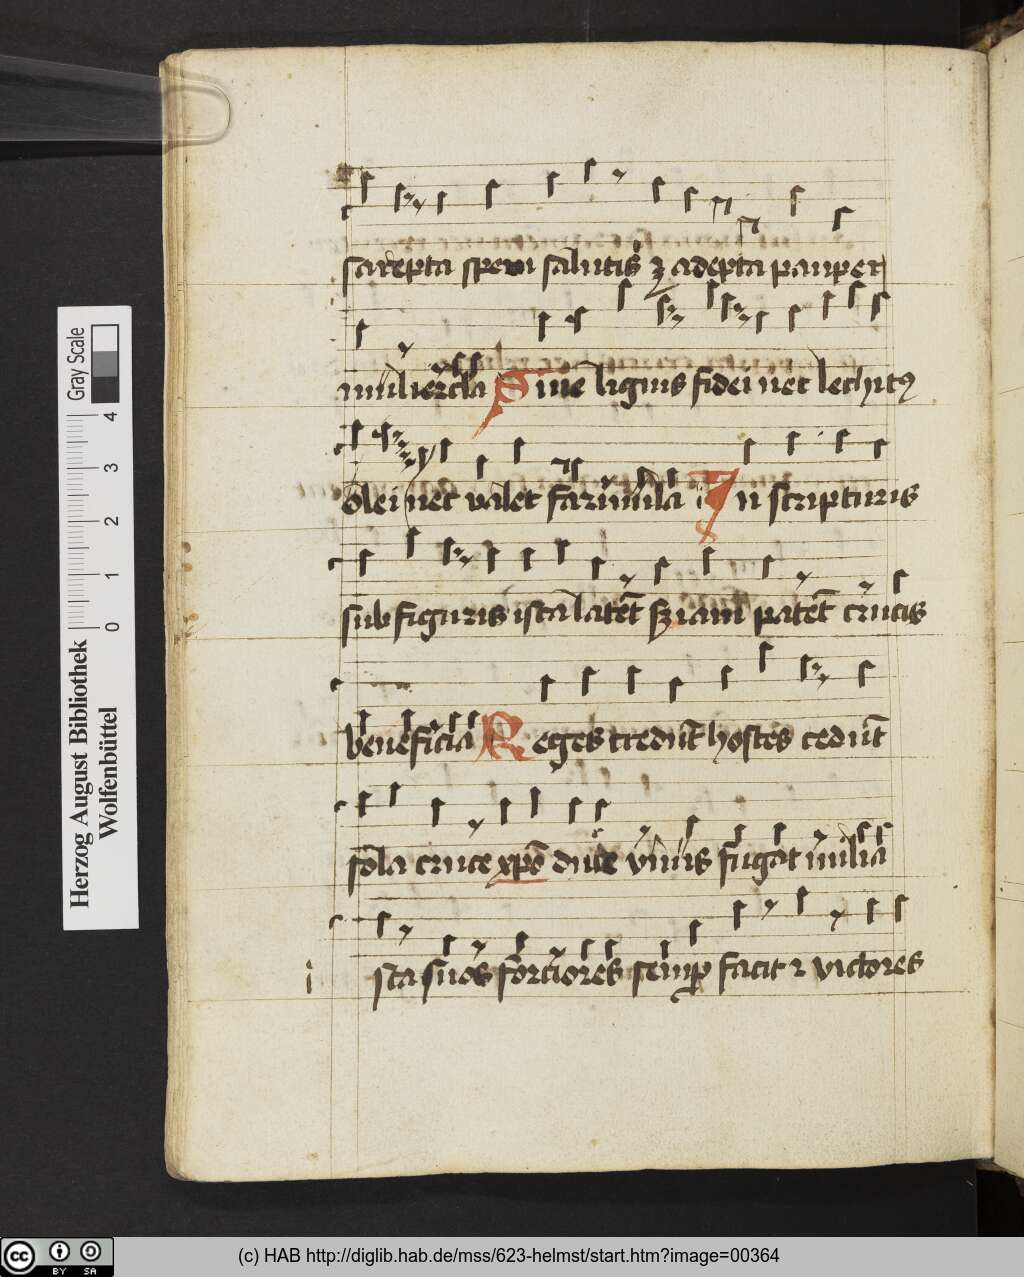 sarepta spem salutis ꝫ adepta pauper
muliercula Sine lignis fidei nec lechitꝰ
olei nec valet farinula In scripturis
sub figuris ista latēt sꝫ iam patēt crucis
beneficia Reges credūt hostes cedūt
sola cruce xpo duce vnus fugat milia
ista suos forciores semp facit ⁊ victores
Gray Scale
0 1 2 3 4
Herzog August Bibliothek
Wolfenbüttel
cc BY SA
(c) HAB http://diglib.hab.de/mss/623-helmst/start.htm?image=00364